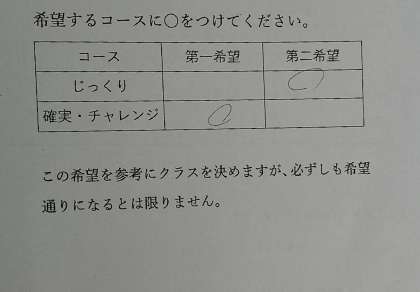 希望するコースに〇をつけてください。
コース 第一希望 第二希望
じっくり 〇
確実・チャレンジ 〇
この希望を参考にクラスを決めますが、必ずしも希望
通りになるとは限りません。